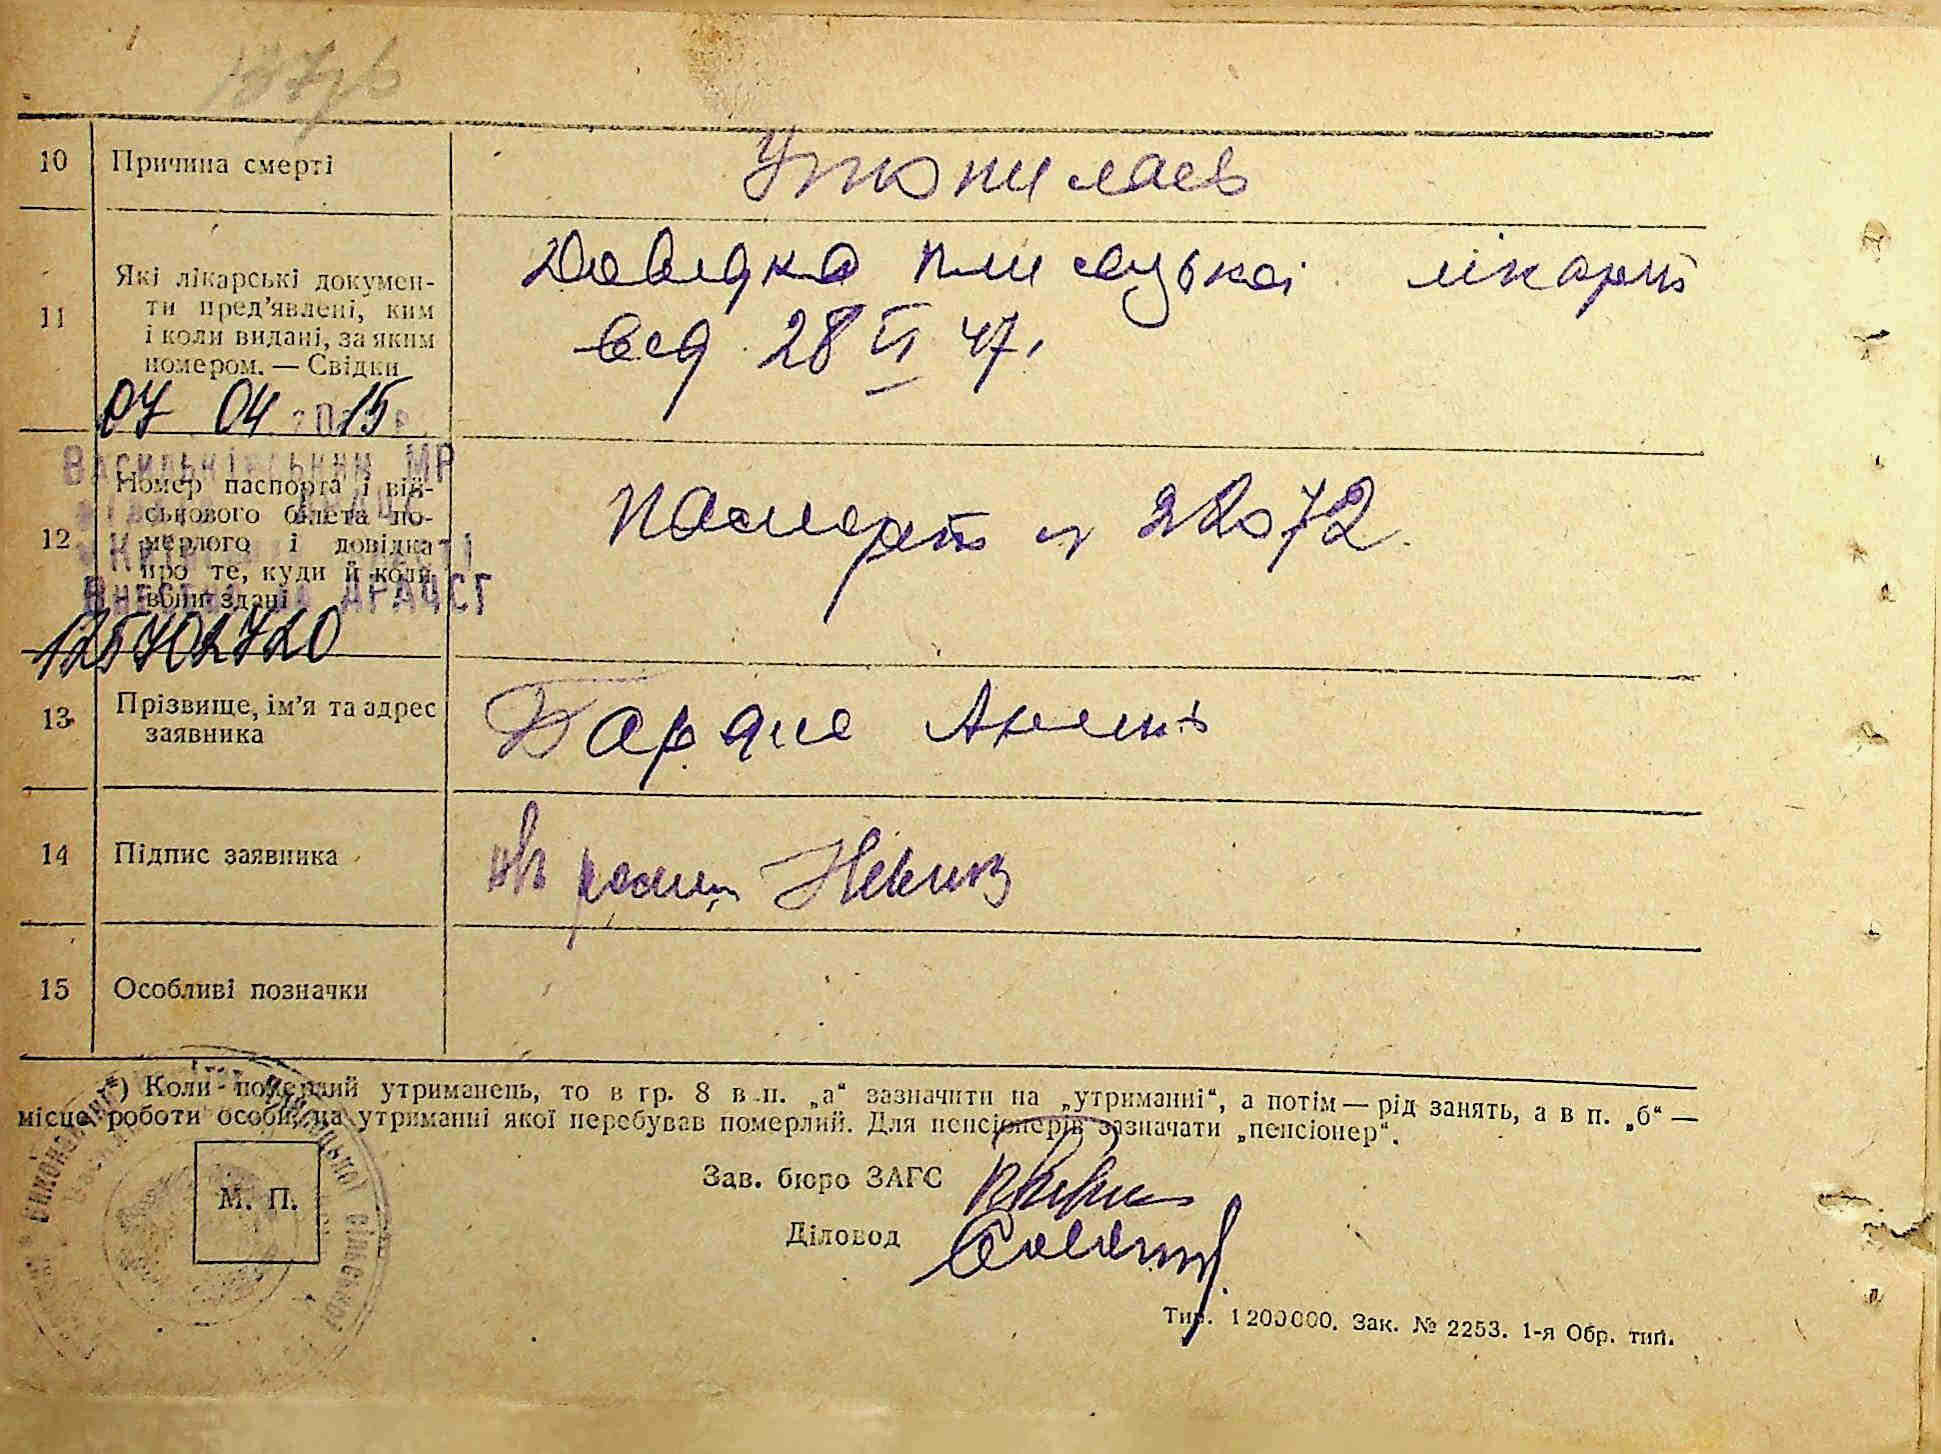 10 Причина смерті Утопилась
11 Які лікарські докумен-
ти пред'явлені, ким
і коли видані, за яким
номером. — Свідки
Довидка плисецької лікарні
вид 28 VI 47.
07 04 15
Васильківський МР
12 Номер паспорта і вій-
ськового білета по-
мерлого і довідка
про те, куди й коли
вони здані
Паспорт № 22072
Внесена до ДРАЦСГ
125702720
13 Прізвище, ім'я та адрес
заявника
14 Підпис заявника
15 Особливі позначки
*) Коли померлий утриманець, то в гр. 8 в п. „а“ зазначити на „утриманні“, а потім — рід занять, а в п. „б“ —
місце роботи особи, на утриманні якої перебував померлий. Для пенсіонерів зазначати „пенсіонер“.
М. П.
Зав. бюро ЗАГС
Діловод
Тир. 1200000. Зак. № 2253. 1-я Обр. тип.